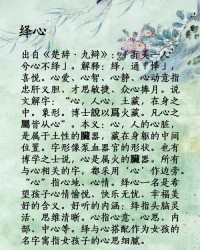 绎心
出自《楚辞·九辩》：“有美一人
兮心不绎”。解释：绎，通「怿」，
喜悦。心爱、心智、心静、心动意指
忠肝义胆、才思敏捷、众心捧月。说
文解字：“心，人心，土藏，在身之
中。象形。博士說以爲火藏。凡心之
屬皆从心”。本义：心，人的心脏，
是属于土性的臟器，藏在身躯的中间
位置。字形像泵血器官的形状。也有
博学之士说，心是属火的臟器。所有
与心相关的字，都采用“心”作边旁。
“心”指心地、心情。绎心一名是希
望孩子心情愉悦、快乐无忧、幸福美
好的含义。好听的内涵：绎指头脑灵
活，思维清晰。心指心意、心思、内
部、中心等。绎与心搭配作为女孩的
名字寓指女孩子的心思细腻。